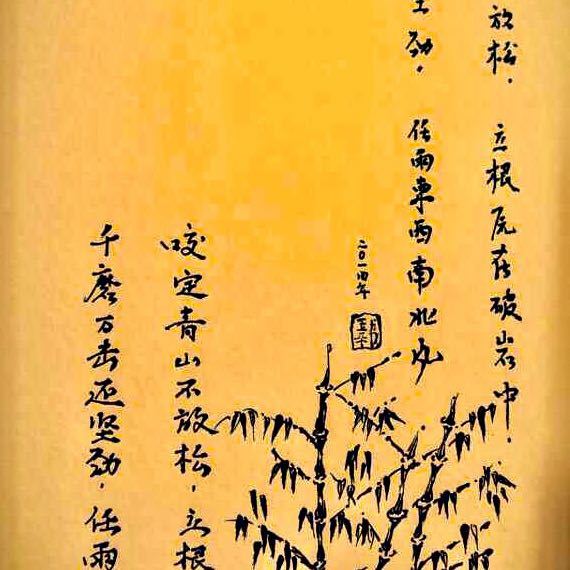 放松，立根原在破岩中，
劲，任雨東西南北风
二〇一四年
咬定青山不放松，立根
千磨万击还坚劲，任雨